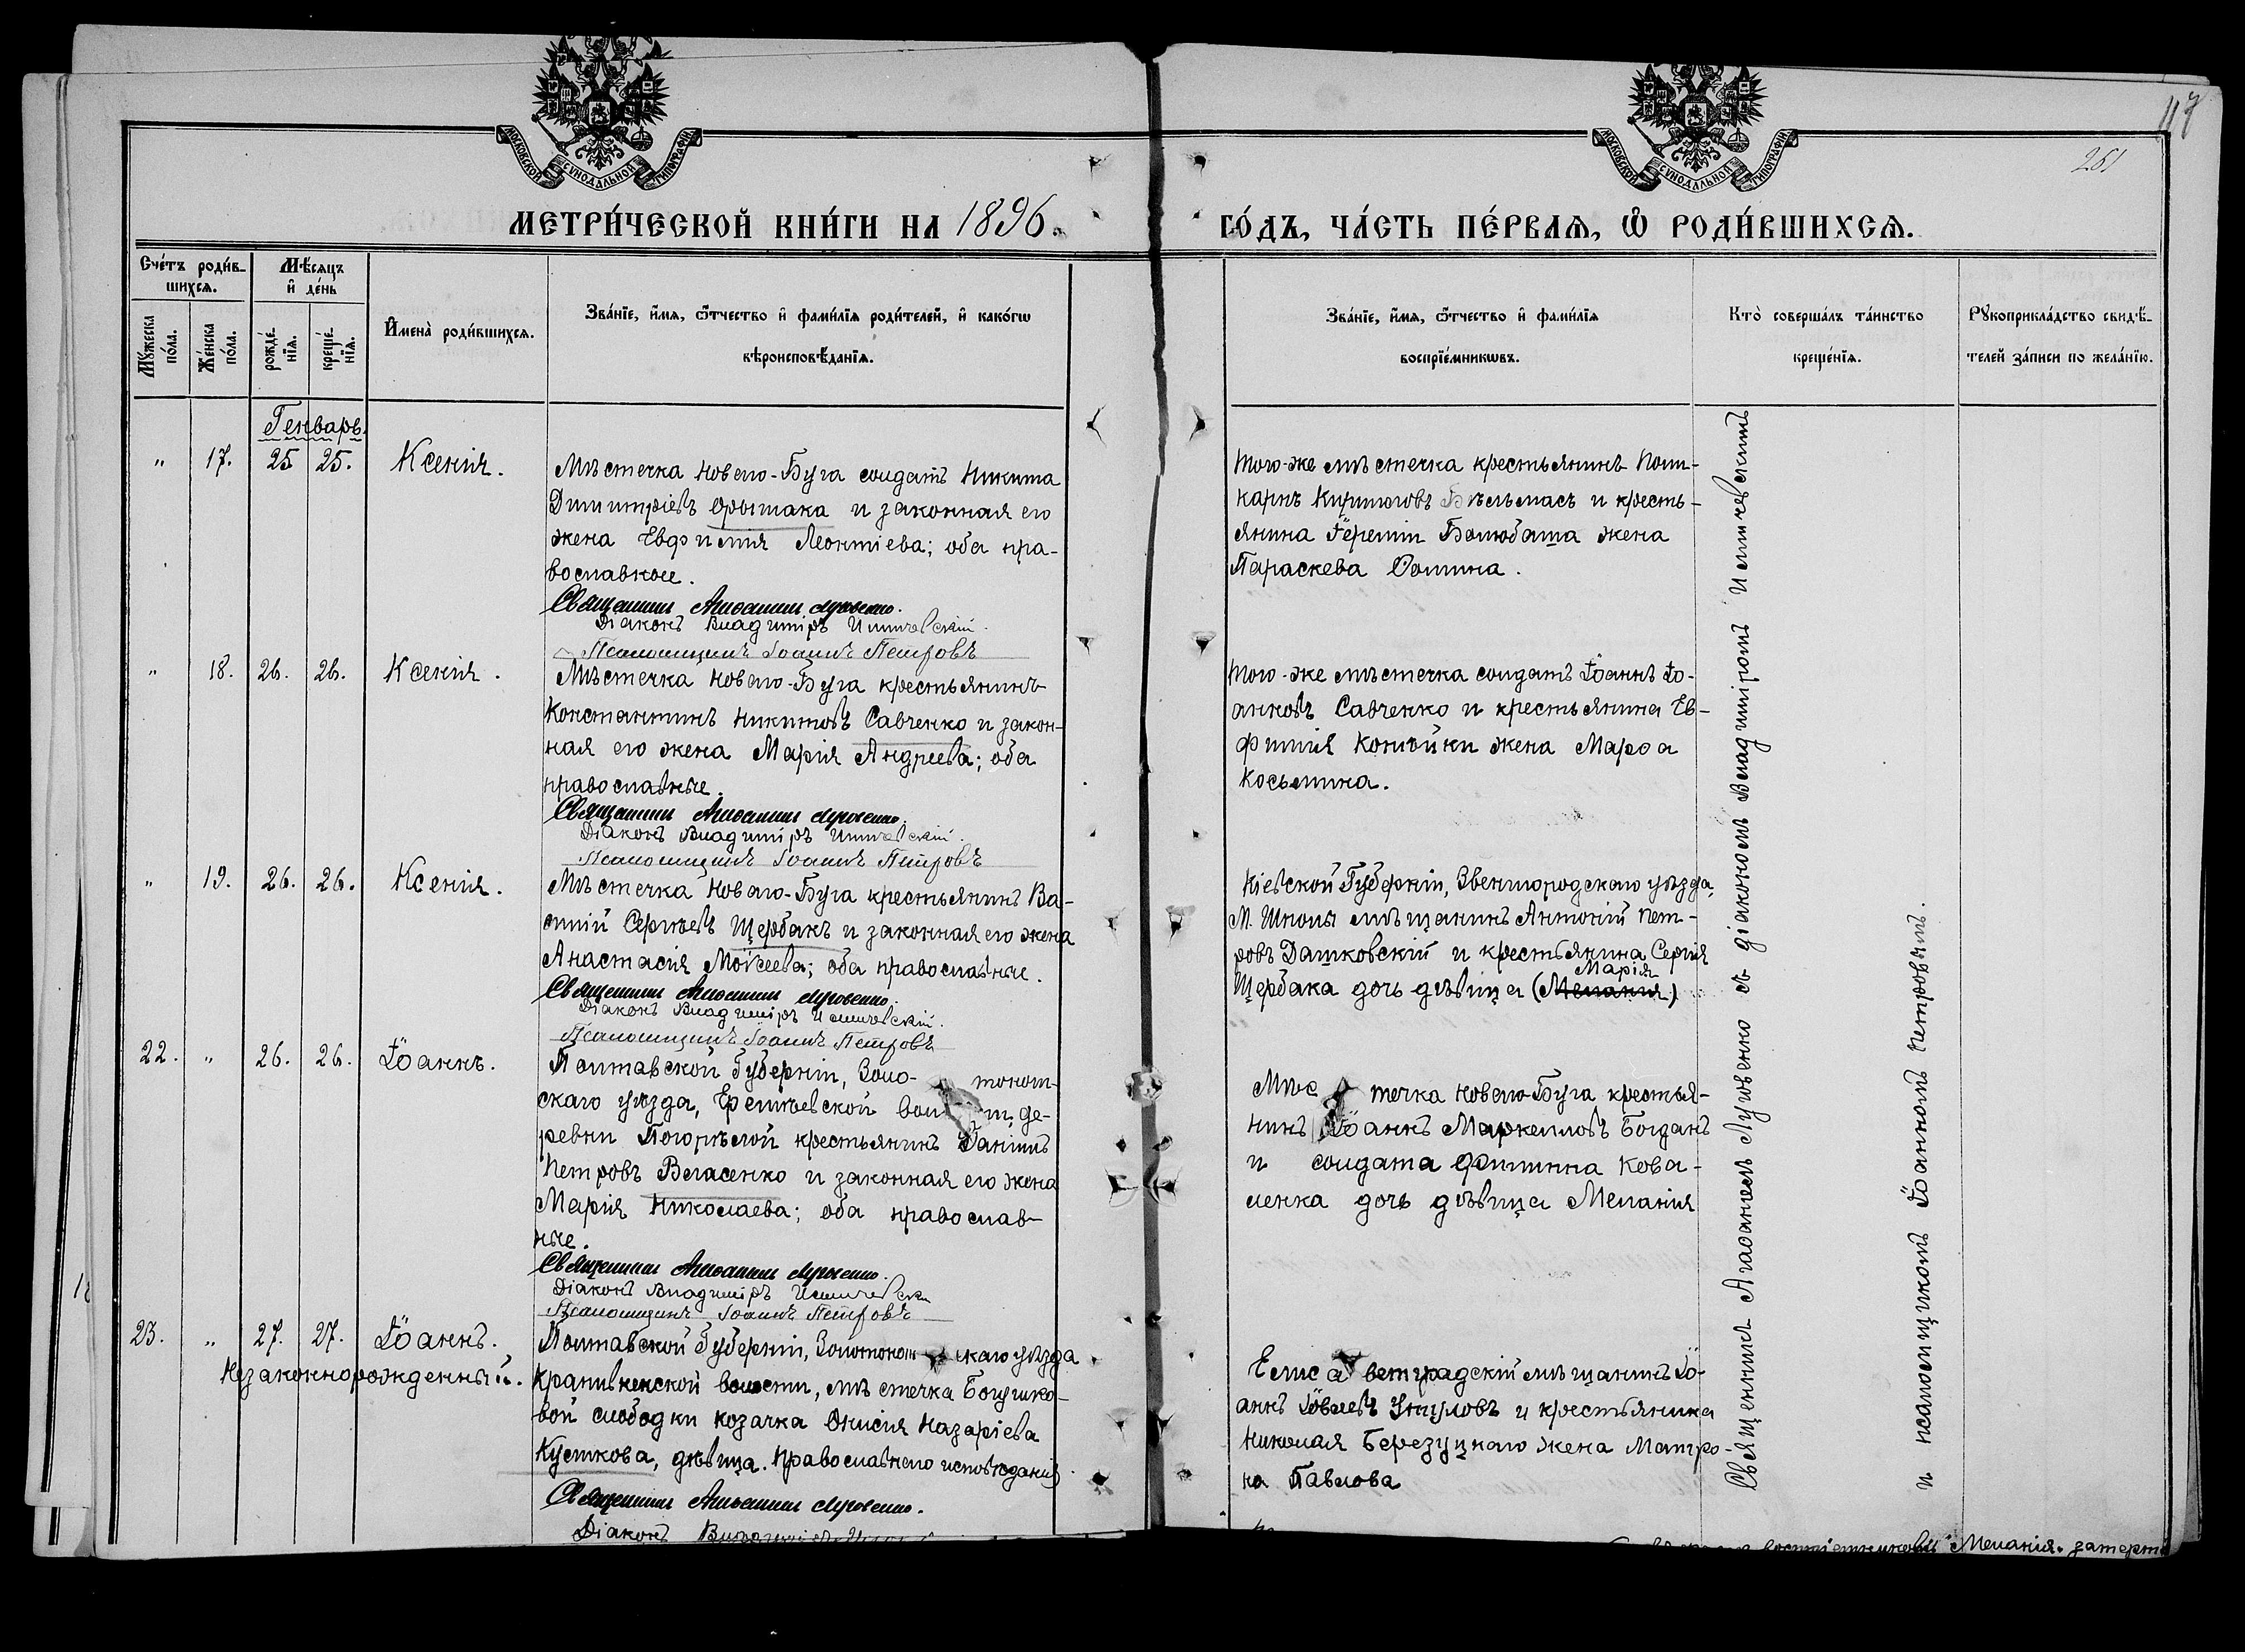 117
261
МОСКОВСКОЙ СѴНОДАЛЬНОЙ ТИПОГРАФІИ
МОСКОВСКОЙ СѴНОДАЛЬНОЙ ТИПОГРАФІИ
МЕТРИ́ЧЕСКОЙ КНИ́ГИ НА 1896.
ГО́ДЪ, ЧА́СТЬ ПЕ́РВАѦ, Ѡ҆ РОДИ́ВШИХСѦ.
Сче́тъ роди́в-
шихсѧ.
Мꙋ́жеска по́ла.
Же́нска по́ла.
Мѣ́сѧцъ и҆ де́нь
рожде́нїѧ.
креще́нїѧ.
И҆мена̀ роди́вшихсѧ.
Зва́нїе, и҆́мѧ, ѻ҆́тчество и҆ фами́лїѧ роди́телей, и҆ како́гѡ
вѣроисповѣ́данїѧ.
Зва́нїе, и҆́мѧ, ѻ҆́тчество и҆ фами́лїѧ
воспрїе́мникѡвъ.
Кто̀ соверша́лъ та́инство
креще́нїѧ.
Рꙋкоприкла́дство свидѣ́-
телей за́писи по жела́нїю.
Генварь.
" 17. 25 25. Ксенія.
Мѣстечка Новаго-Буга солдатъ Никита
Димитріевъ Фрымака и законная его
жена Евфимія Леонтіева; оба пра-
вославные.
Священникъ Аѳанасій Луговенко.
Діаконъ Владиміръ Иличевскій.
Псаломщикъ Іоаннъ Петровъ
Того-же мѣстечка крестьянинъ Поли-
карпъ Кирилловъ Бѣльмасъ и кресть-
янина Іереміи Балюбаша жена
Параскева Фомина.
" 18. 26. 26. Ксенія.
Мѣстечка Новаго-Буга крестьянинъ
Константинъ Никитовъ Савченко и закон-
ная его жена Марія Андреева; оба
православные.
Священникъ Аѳанасій Луговенко.
Діаконъ Владиміръ Иличевскій.
Псаломщикъ Іоаннъ Петровъ
Того-же мѣстечка солдатъ Іоаннъ Іо-
анновъ Савченко и крестьянина Ев-
фимія Копѣйки жена Марѳа
Косьмина.
" 19. 26. 26. Ксенія.
Мѣстечка Новаго-Буга крестьянинъ Ва-
силій Сергѣевъ Щербакъ и законная его жена
Анастасія Моисеева; оба православные.
Священникъ Аѳанасій Луговенко.
Діаконъ Владиміръ Иличевскій.
Псаломщикъ Іоаннъ Петровъ
Кіевской Губерніи, Звенигородскаго уѣзда,
М. Шполы мѣщанинъ Антоній Пет-
ровъ Дашковскій и крестьянина Сергія
Марія
Щербака дочь дѣвица (Меланія)
22. " 26. 26. Іоаннъ.
Полтавской Губерніи, Золо-тонош-
скаго уѣзда, Еремѣевской де-
ревни Погорѣлой крестьянинъ Даніилъ
Петровъ Власенко и законная его жена
Марія Николаева; оба православ-
ные.
Священникъ Аѳанасій Луговенко.
Діаконъ Владиміръ Иличевскій
Псаломщикъ Іоаннъ Петровъ
Мѣстечка Новаго-Буга крестья-
нинъ Іоаннъ Маркелловъ Богданъ
и солдата Филиппа Кова-
ленка дочь дѣвица Меланія
23. " 27. 27. Іоаннъ.
Незаконнорожденный.
Полтавской Губерніи, Золотоношскаго уѣзда
Крапивненской волости, мѣстечка Богушко-
вой слободки козачка Онисія Назаріева
Кумкова, дѣвица. Православнаго исповѣданія
Священникъ Аѳанасій Луговенко.
Діаконъ
Елисаветградскій мѣщанинъ Іо-
аннъ Іовлевъ и крестьянина
Николая Березуцкаго жена Матро-
на Павлова
Священникъ Аѳанасій Луговенко съ діакономъ Владиміромъ Иличевскимъ
и псаломщикомъ Іоанномъ Петровымъ.
воспріемниковъ "Меланія" затерто